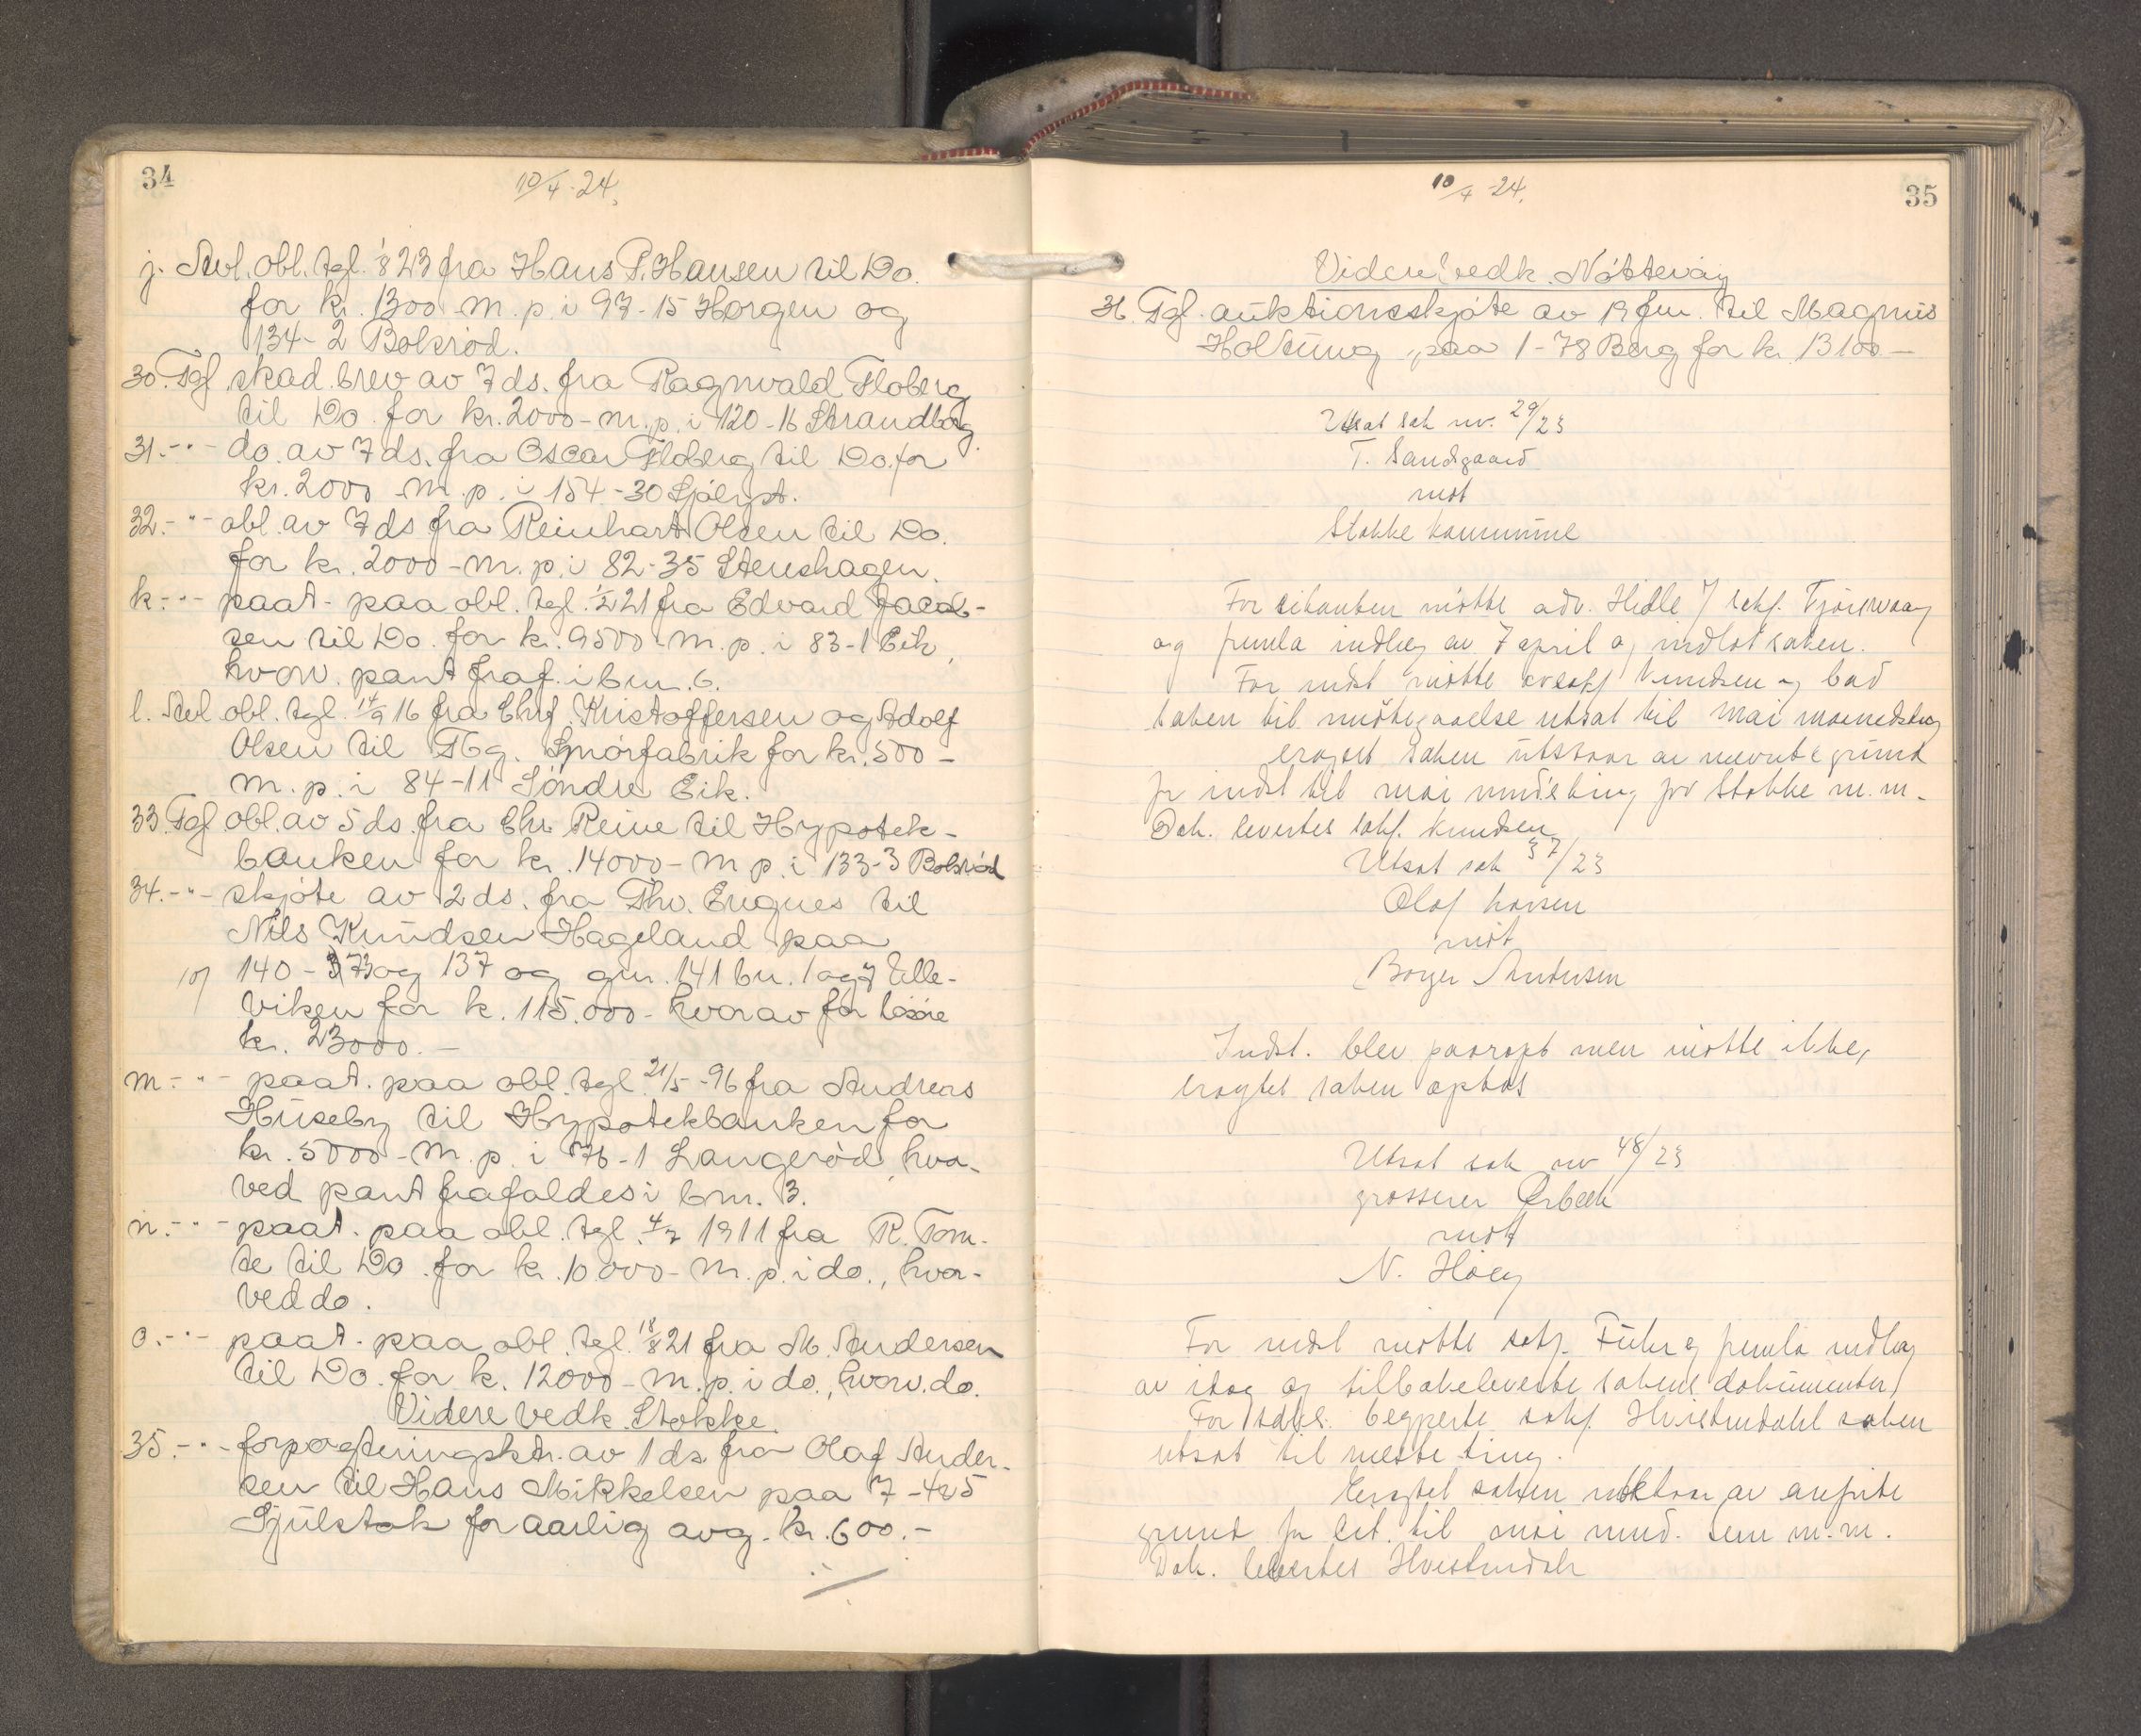 34
10/4-24.
j. Avl. obl. tgl. 1/8 23 fra Hans P. Hansen til Do.
for kr. 1300 - m. p. i 97-15 Horgen og
134-2 Bolsrød.
30. Tgl. skad.brev av 7 ds. fra Ragnvald Floberg
til Do. for kr. 2000 - m. p. i 120-16 Strandborg.
31. -"- do. av 7 ds. fra Oscar Floberg til Do. for
kr. 2000 - m. p. i 154-30 Sjølyst.
32. -"- obl. av 7 ds fra Reinhart Olsen til Do.
for kr. 2000 - m. p. i 82-35 Steenshagen.
k. -"- paat. paa obl. tgl. 1/2 21 fra Edvard Jacob-
sen til Do. for kr. 9500 - m. p. i 83-1 Eik,
hvorv. pant fraf. i bnr. 6.
l. Avl. obl. tgl. 14/9 16 fra Chrf. Kristoffersen og Adolf
Olsen til Tbg. Smørfabrik for kr. 500 -
m. p. i 84-11 Søndre Eik.
33. Tgl. obl. av 5 ds. fra Chr. Reine til Hypotek-
banken for kr. 14000 - m. p. i 133-3 Bolsrød
34. -"- skjøte av 2 ds. fra Thv. Eugnes til
Nils Knudsen Hageland paa
107 140-373 og 137 og gnr. 141 bnr. 1 og 7 Ulle-
viken for k. 115.000 - hvorav for løsøre
kr. 23000.-
m. -"- paat. paa obl. tgl. 21/5-96 fra Andreas
Huseby til Hypotekbanken for
kr. 5000 - m. p. i 76-1 Langerød, hvor-
ved pant frafaldes i bnr. 3.
n. -"- paat. paa obl. tgl. 4/7 1911 fra R. Tom-
te til Do. for kr. 10000 - m. p. i do., hvor-
ved do.
o. -"- paat. paa obl. tgl. 18/8 21 fra M. Andersen
til Do. for k. 12000 - m. p. i do., hvorv. do.
Videre vedk. Stokke.
35. -"- forpagtningsktr. av 1 ds fra Olaf Ander-
sen til Hans Mikkelsen paa 7-4 5
Gjulstok for aarlig avg. kr. 600.-
10/4-24.
35
Videre vedk. Nøtterøy
36. Tgl. auktionsskjøte av 19 fm. til Magnus
Holtung paa 1-78 Berg for kr. 13100 -
Utsat sak nr. 29/23
T. Sandgaard
mot
Stokke kommune
For citanten møtte adv. Hidle v/ sakf. Tjørsvaag
og fremla indlæg av 7 april og indlot saken.
For indst møtte ovsakf Knudsen og bad
saken til imøtegaaelse utsat til mai maanedsting
eragtet saken utstaar av nævnte grund
for indst til mai mnd'sting for Stokke m. m.
Dok. levertes sakf. Knudsen
Utsat sak 37/23
Olaf Larsen
mot
Borger Andersen
Indst. blev paaropt men møtte ikke,
eragtet saken optas
Utsat sak nr 48/23
grosserer Ørbeck
mot
N. Høeg
For indst møtte sakf. Führ og fremla indlæg
av idag og tilbakeleverte sakens dokumenter,
For begjærte sakf. Hvistendahl saken
utsat til næste ting.
Eragtet saken utstaar av anførte
grund for cit. til mai mnd. Sem m. m.
Dok. levertes Hvistendahl